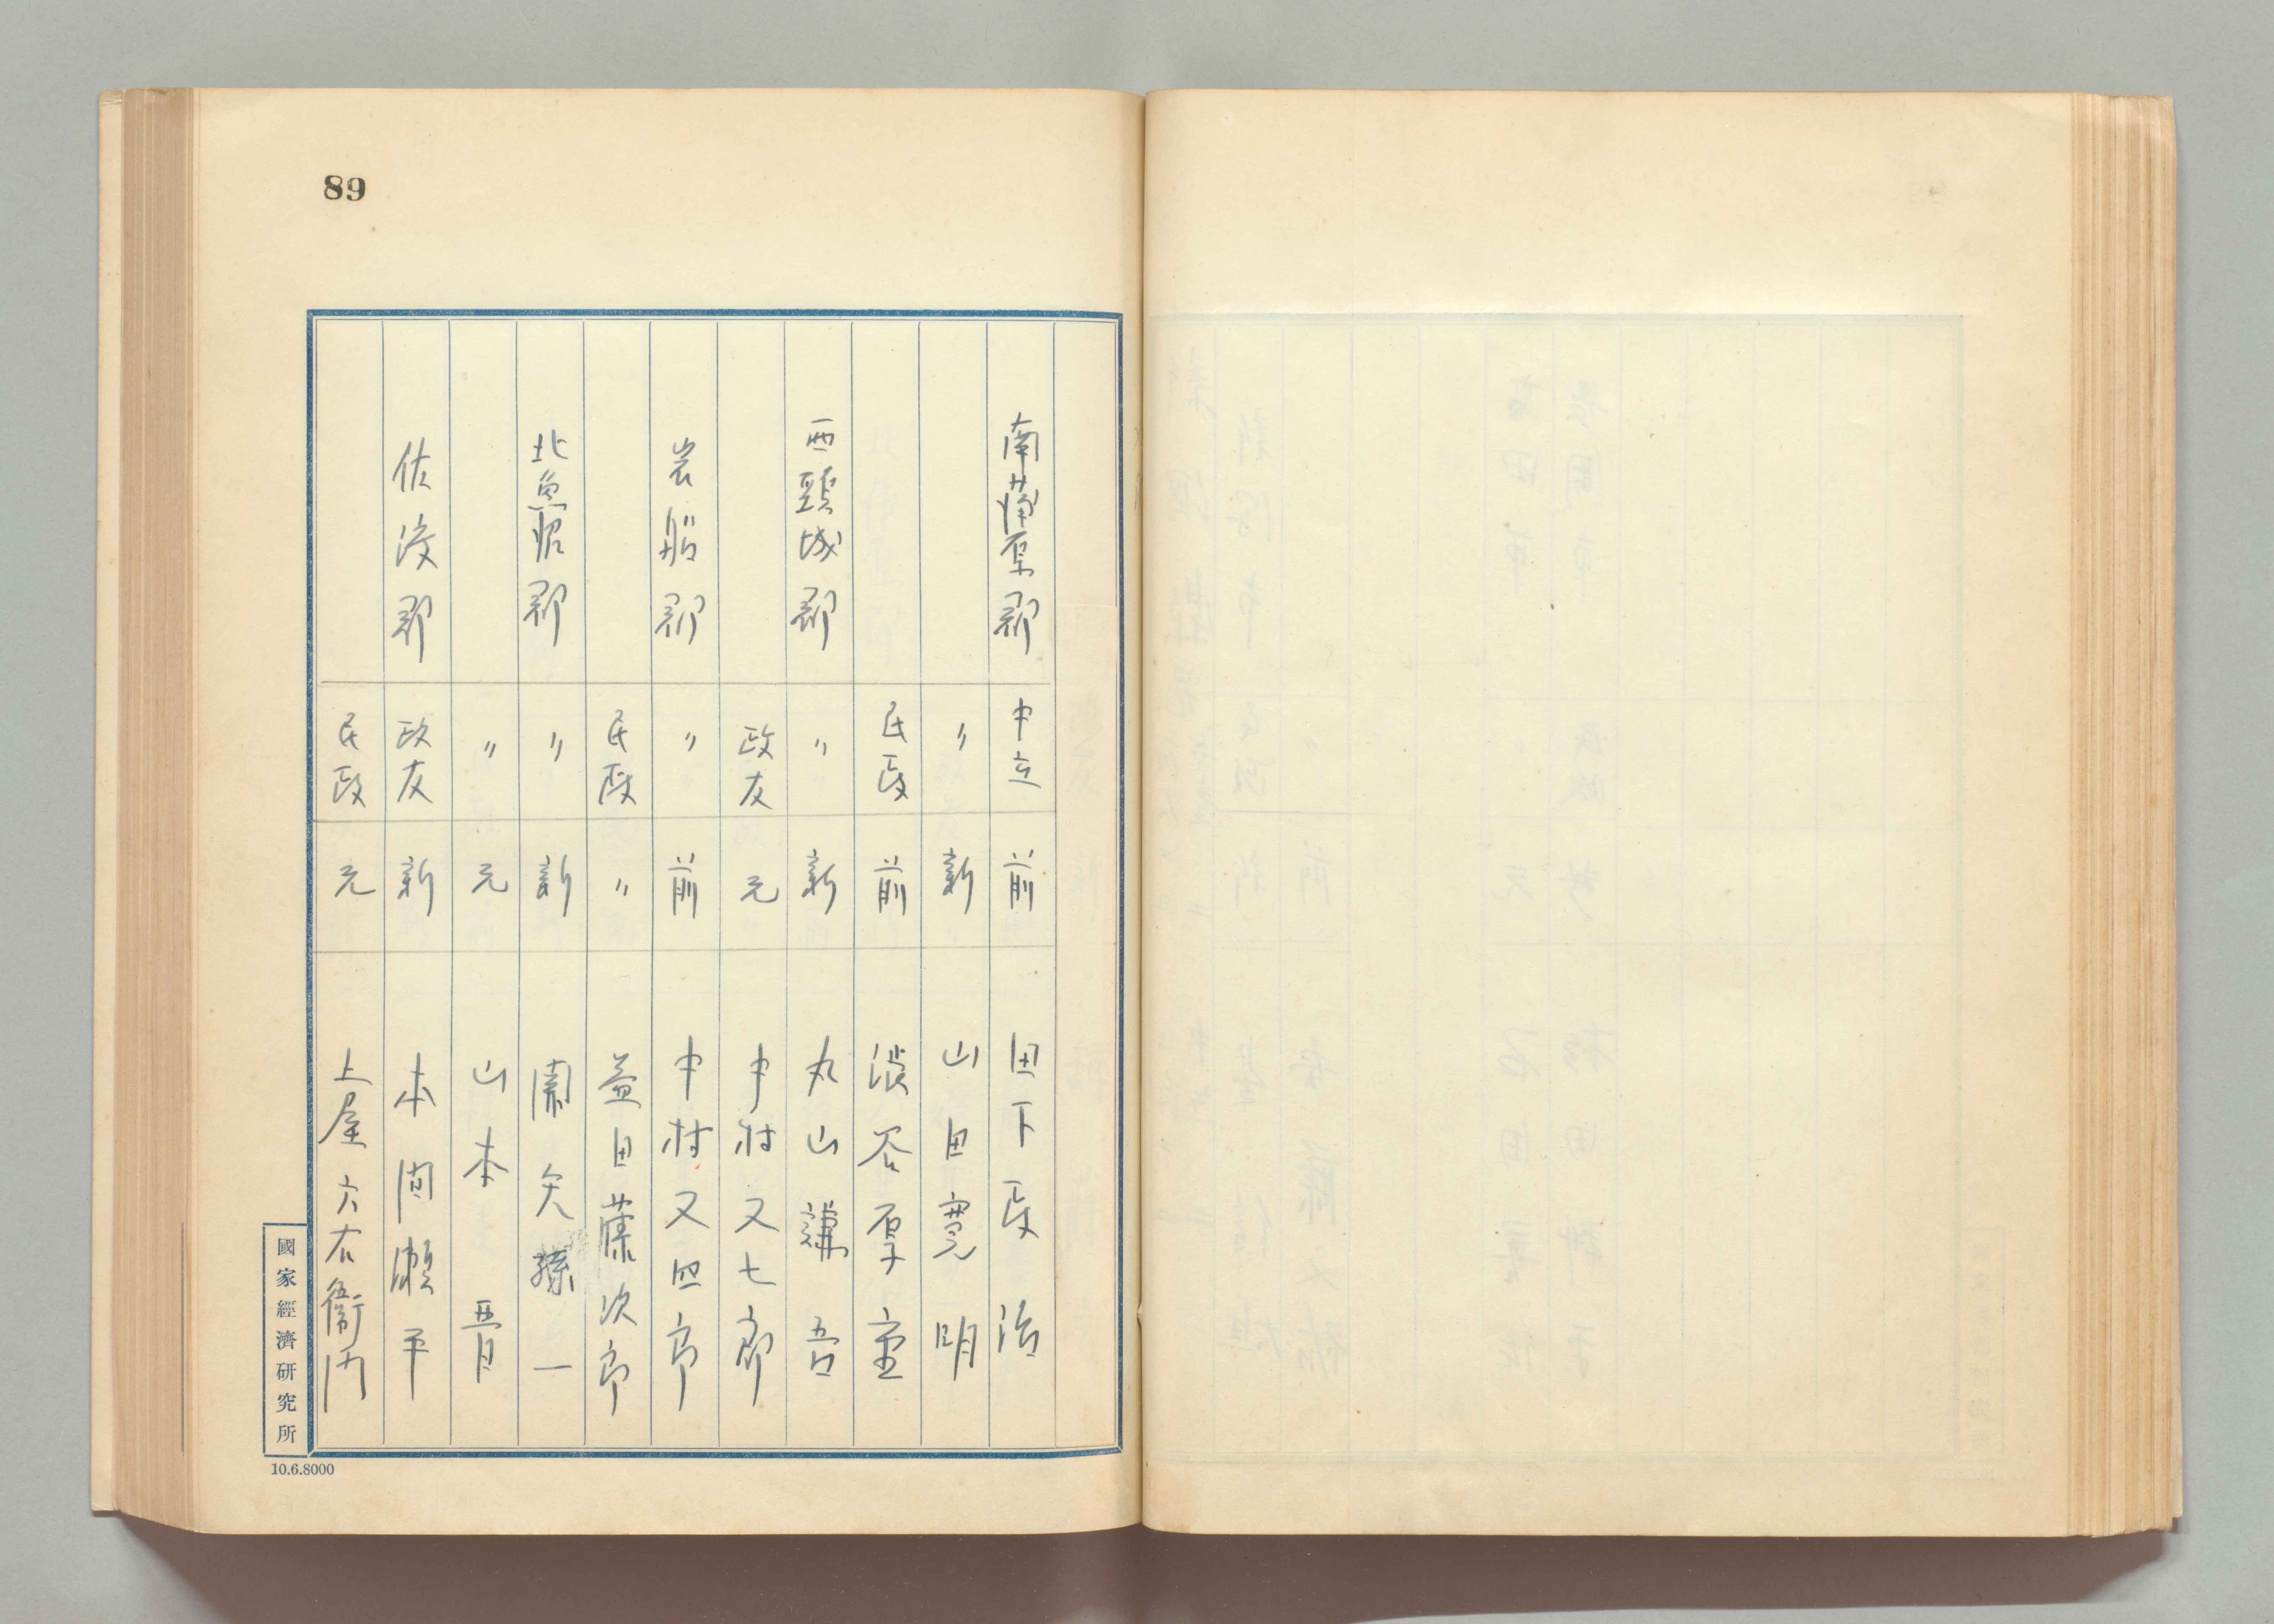 89
南蒲原郡 中立 前 田下政治
〃 新 山田寛明
民政 前 渋谷厚重
西頸城郡 〃 新 丸山謙吾
政友 元 中村又七郎
岩船郡 〃 前 中村又四郎
民政 〃 益田藤次郎
北魚沼郡 〃 新 関矢孫一
〃 元 山本晋
佐渡郡 政友 新 本間瀬平
民政 元 土屋六右衞門
國家經濟研究所
10.6.8000